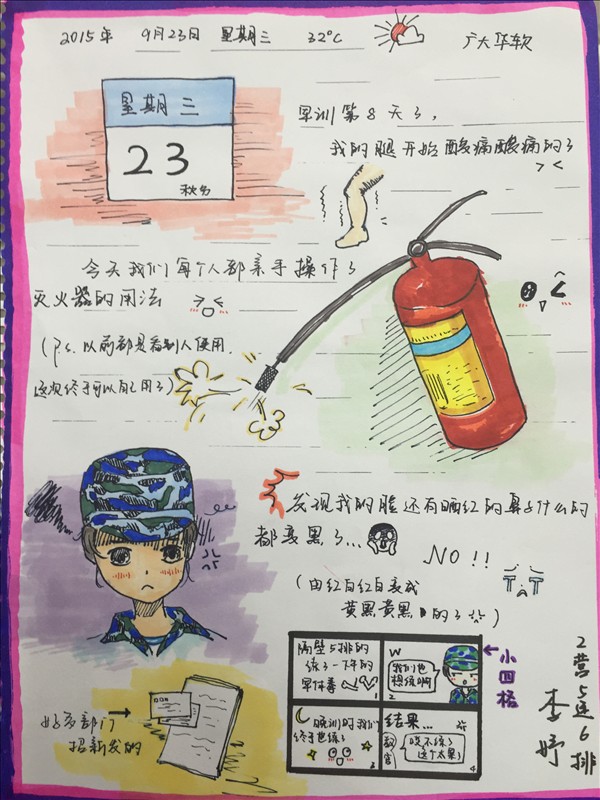 2015年 9月23日 星期三 32℃ 广大华软
星期三
23
秋分
军训第8天了,
我的腿开始酸痛酸痛的了
今天我们每个人都亲手操作了
灭火器的用法
(Ps. 以前都是看别人使用,
这次终于可以自己用了)
发现我的脸还有晒红的鼻子什么的
都变黑了...
NO!!
(由红白红白变成
黄黑黄黑的了)
好多部门
招新发的
小四格
隔壁5排的
练了一下午的
军体拳
1
W
我们也
想练啊
2
晚训时我们
终于也练了
3
结果...
教官
4
2营5连6排
李妤